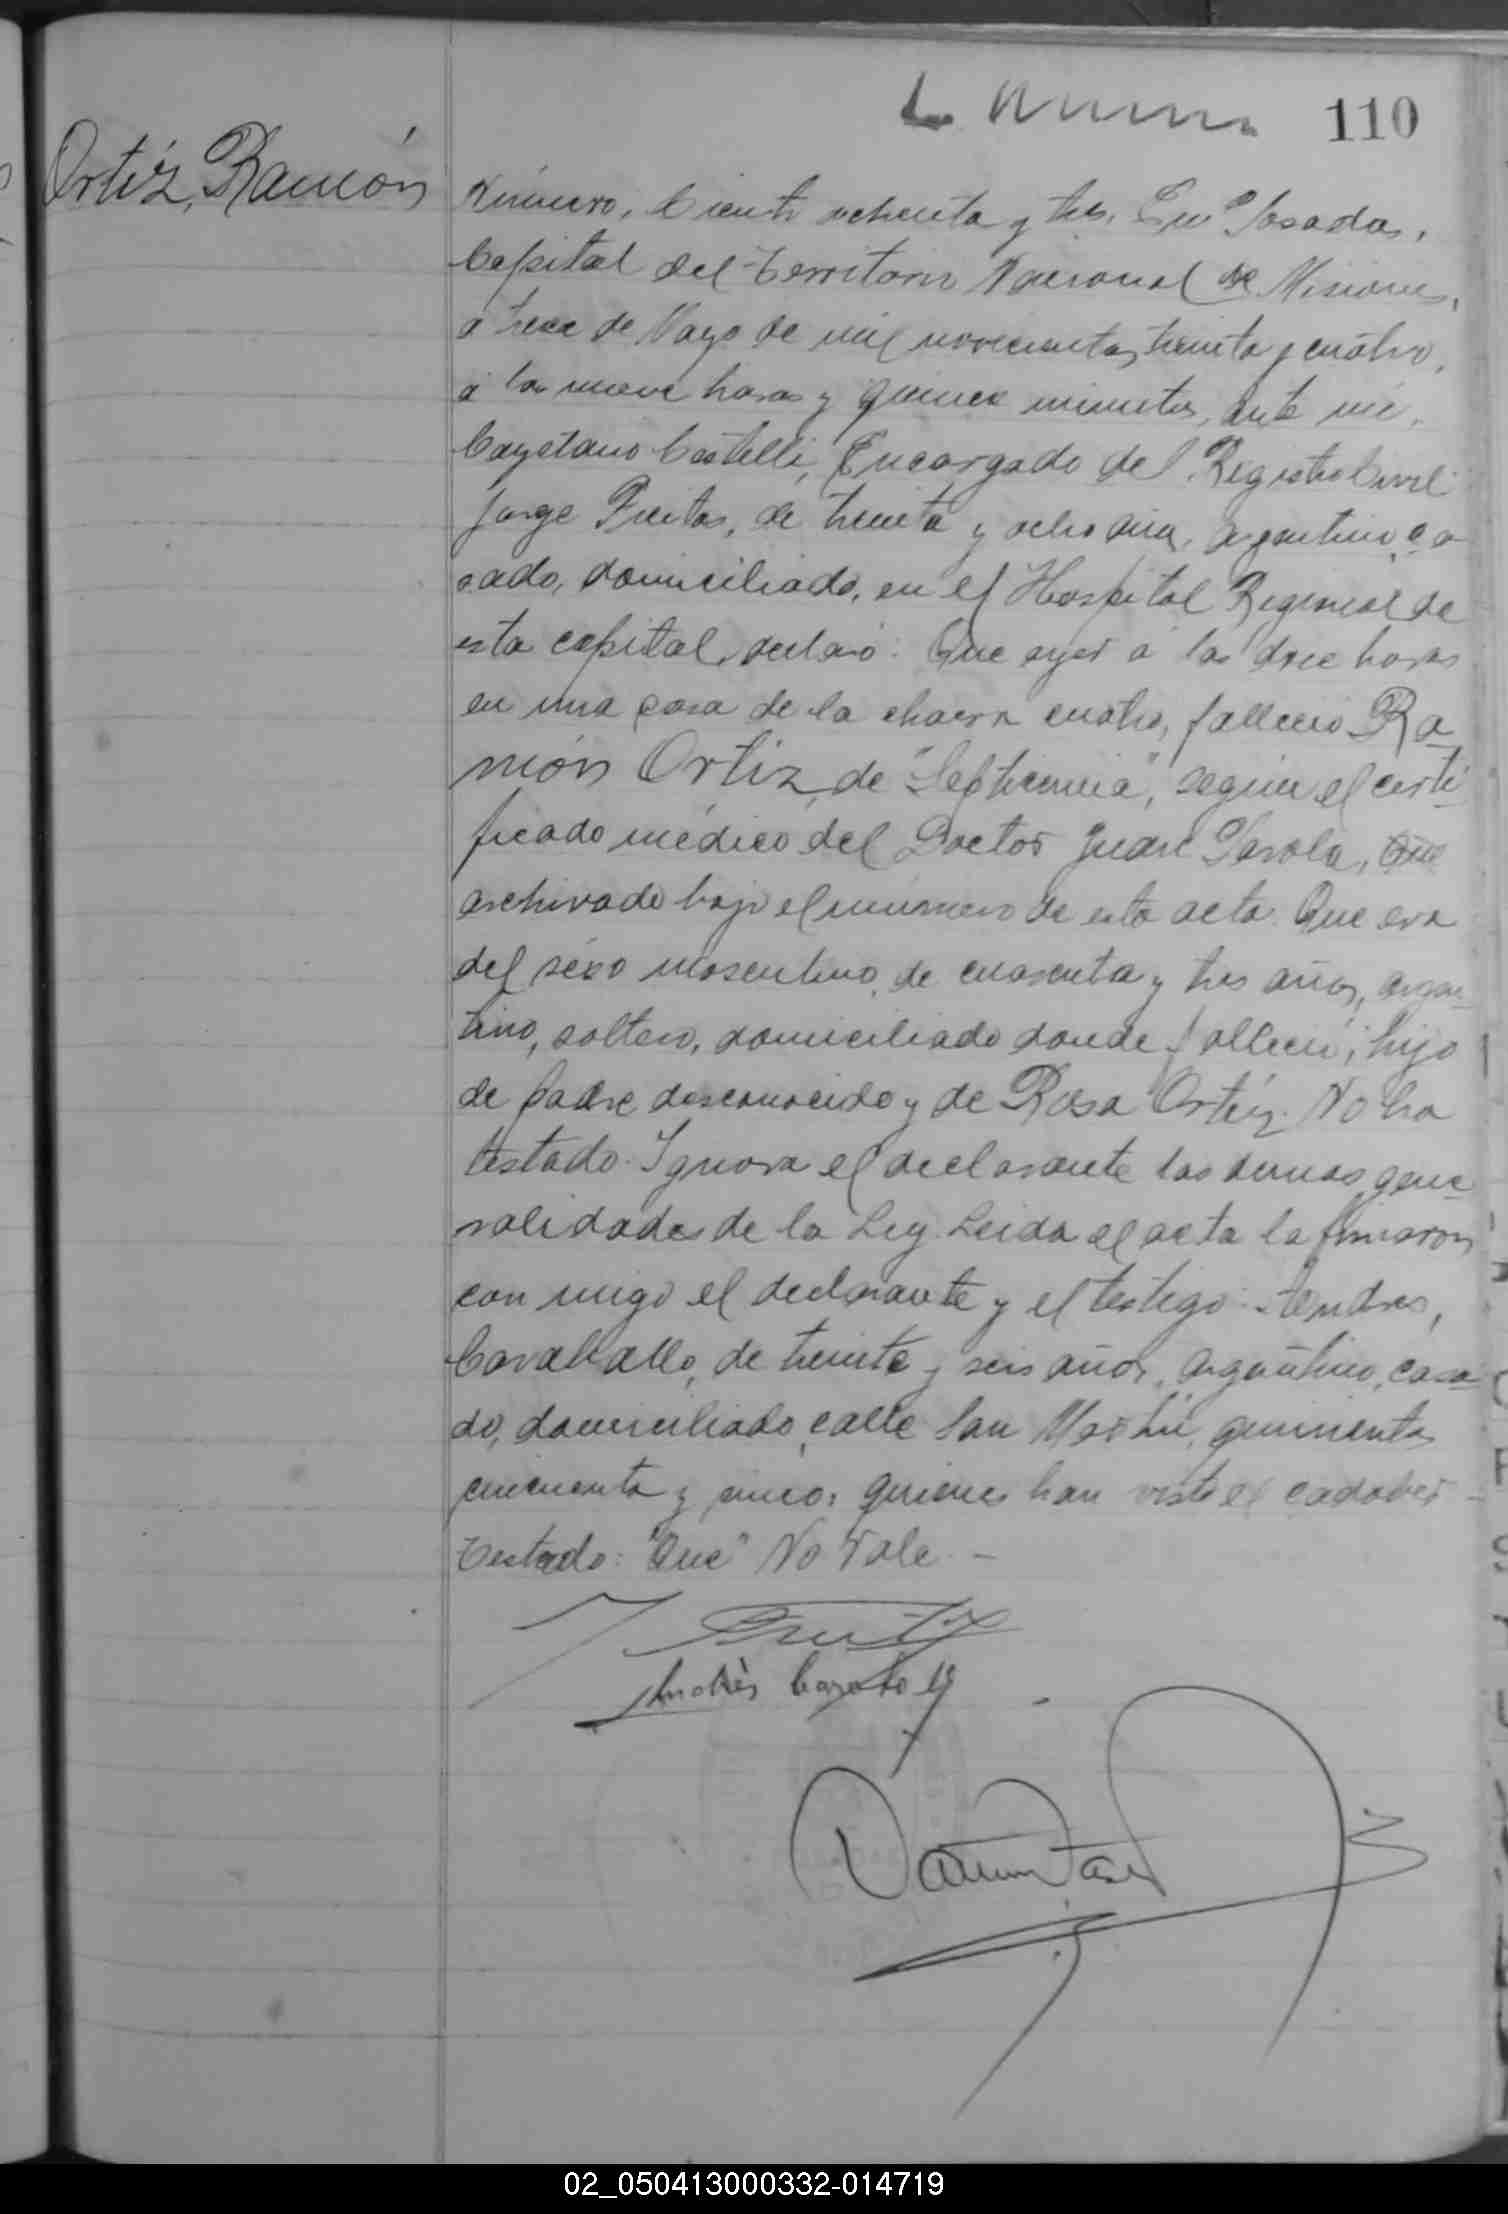 110
Ortíz, Ramón
Número, Ciento ochenta y tres. En Posadas,
Capital del Territorio Nacional de Misiones,
a trece de Mayo de mil novecientos treinta y cuatro,
a las nueve horas y quince minutos, ante mi,
Cayetano Castelli, Encargado del Registro Civil
Jorge Freitas, de treinta y ocho años, argentino, ca-
sado, domiciliado, en el Hospital Regional de
esta capital, declaró: Que ayer a las doce horas
en una casa de la chacra cuatro, falleció Ra-
món Ortiz, de "Septicemia", según el certi-
ficado médico del Doctor Juan Parola, Que
archivado bajo el número de esta acta. Que era
del sexo masculino, de cuarenta y tres años, argen-
tino, soltero, domiciliado donde falleció; hijo
de padre desconocido y de Rosa Ortíz. No ha
testado. Ignora el declarante las demas gene-
ralidades de la Ley. Leida el acta la firmaron
con migo el declarante y el testigo: Andres,
Caraballo, de treinta y seis años, argentino, casa-
do, domiciliado, calle San Martín, quinientos
cincuenta y cinco, quienes han visto el cadaber -
Testado: "Que" No Vale. -
J Freitas
Andrés
02_050413000332-014719